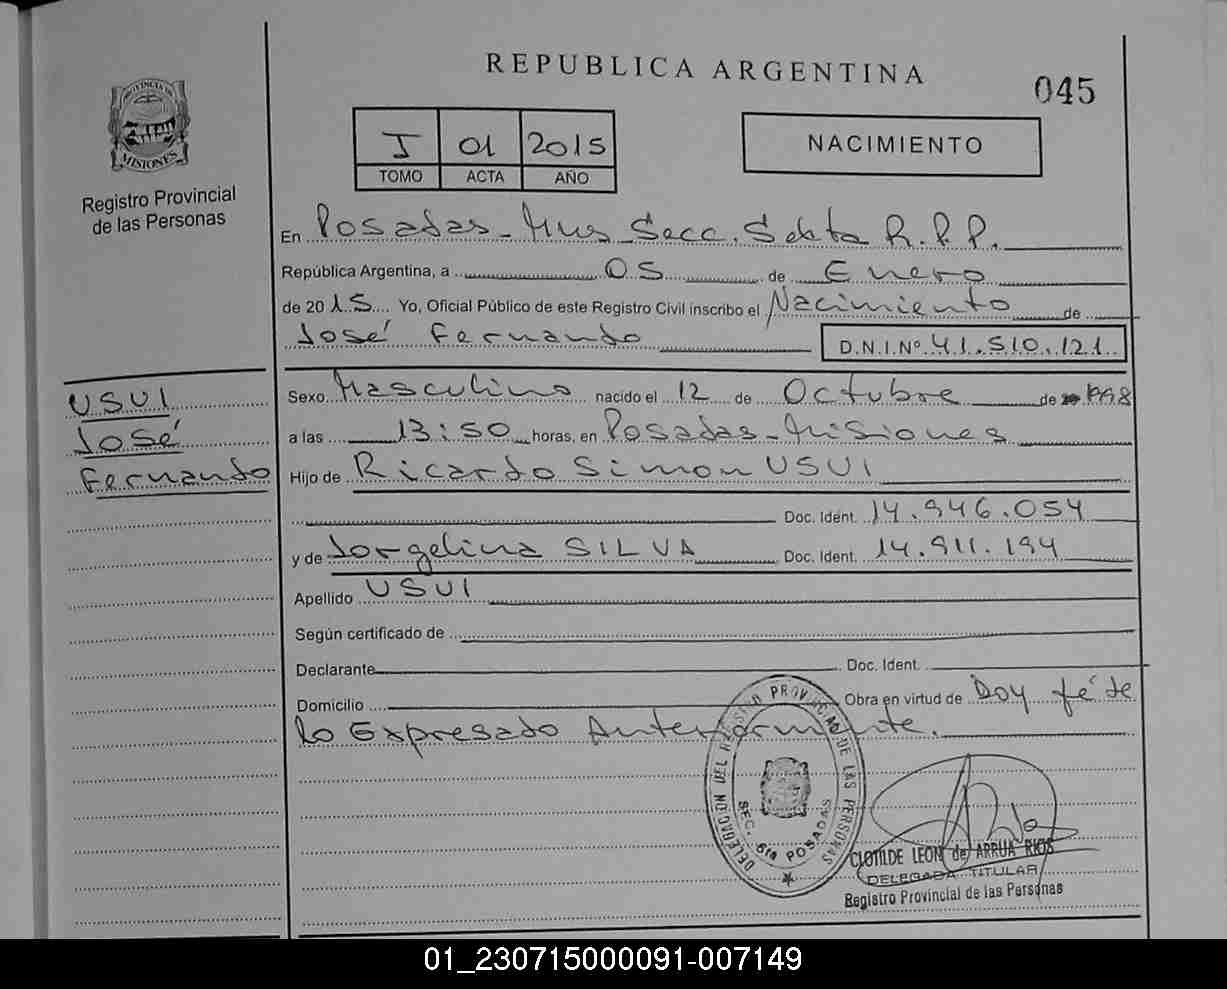 REPUBLICA ARGENTINA
045
PROVINCIA DE
MISIONES
Registro Provincial
de las Personas
I 01 2015
TOMO ACTA AÑO
NACIMIENTO
En Posadas - Mnes Secc. Sexta R.P.P.
República Argentina, a 05 de Enero
de 2015 Yo, Oficial Público de este Registro Civil inscribo el Nacimiento de
José Fernando D.N.I.Nº 41.510.121
USUI
José
Fernando
Sexo Masculino nacido el 12 de Octubre de 1998
a las 13:50 horas, en Posadas - Misiones
Hijo de Ricardo Simon USUI
Doc. Ident. 14.946.054
y de Jorgelina SILVA Doc. Ident. 14.911.194
Apellido USUI
Según certificado de
Declarante Doc. Ident.
Domicilio Obra en virtud de Doy fé de
lo Expresado Anteriormente.
DELEGACIÓN DEL REGISTRO PROVINCIAL DE LAS PERSONAS
SEC. 6ta POSADAS
CLOTILDE LEON de ARRUA RIOS
DELEGADA TITULAR
Registro Provincial de las Personas
01_230715000091-007149